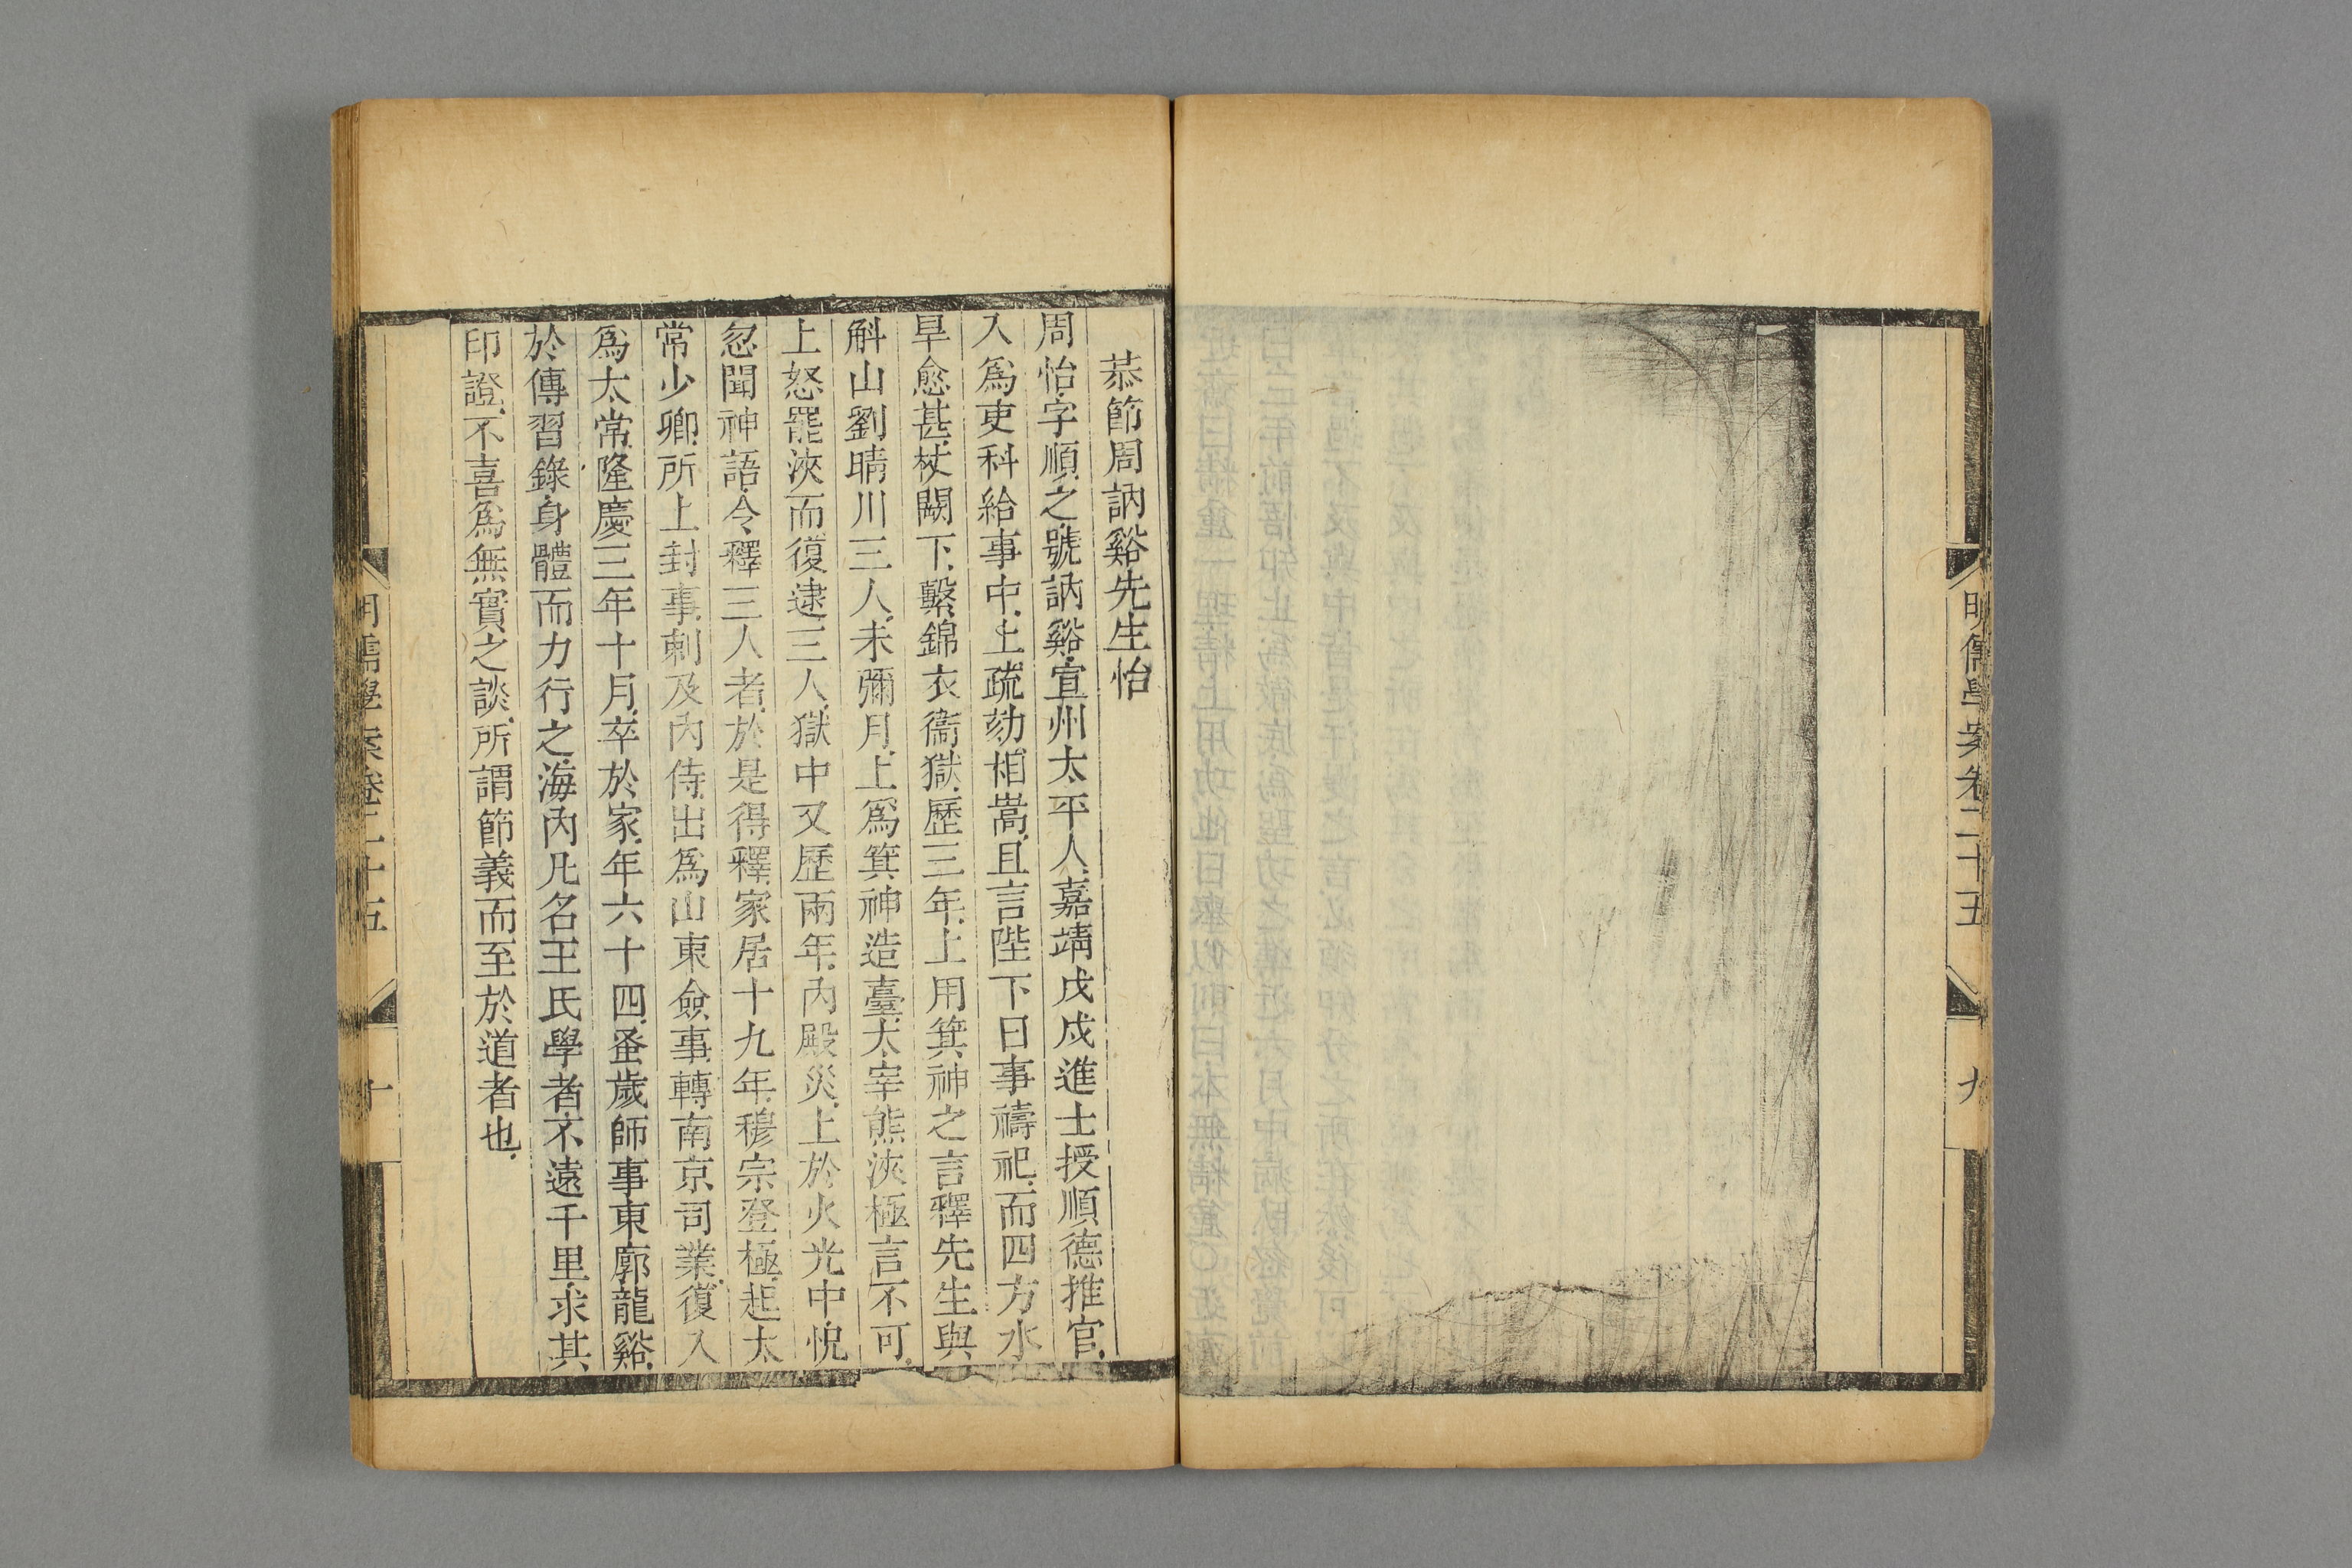 明儒學案卷二十五
九
恭節周訥谿先生怡
周怡字順之號訥谿宣州太平人嘉靖戊戌進士授順德推官
入爲吏科給事中上疏劾相嵩且言陛下日事禱祀而四方水
旱愈甚杖闕下繫錦衣衞獄歷三年上用箕神之言釋先生與
斛山劉晴川三人未彌月上爲箕神造臺太宰熊浹極言不可
上怒罷浹而復逮三人獄中又歷兩年內殿災上於火光中怳
忽聞神語令釋三人者於是得釋家居十九年穆宗登極起太
常少卿所上封事刺及內侍出爲山東僉事轉南京司業復入
爲太常隆慶三年十月卒於家年六十四蚤歲師事東廓龍谿
於傳習錄身體而力行之海內凡名王氏學者不遠千里求其
印證不喜爲無實之談所謂節義而至於道者也
明儒學案卷二十五
十